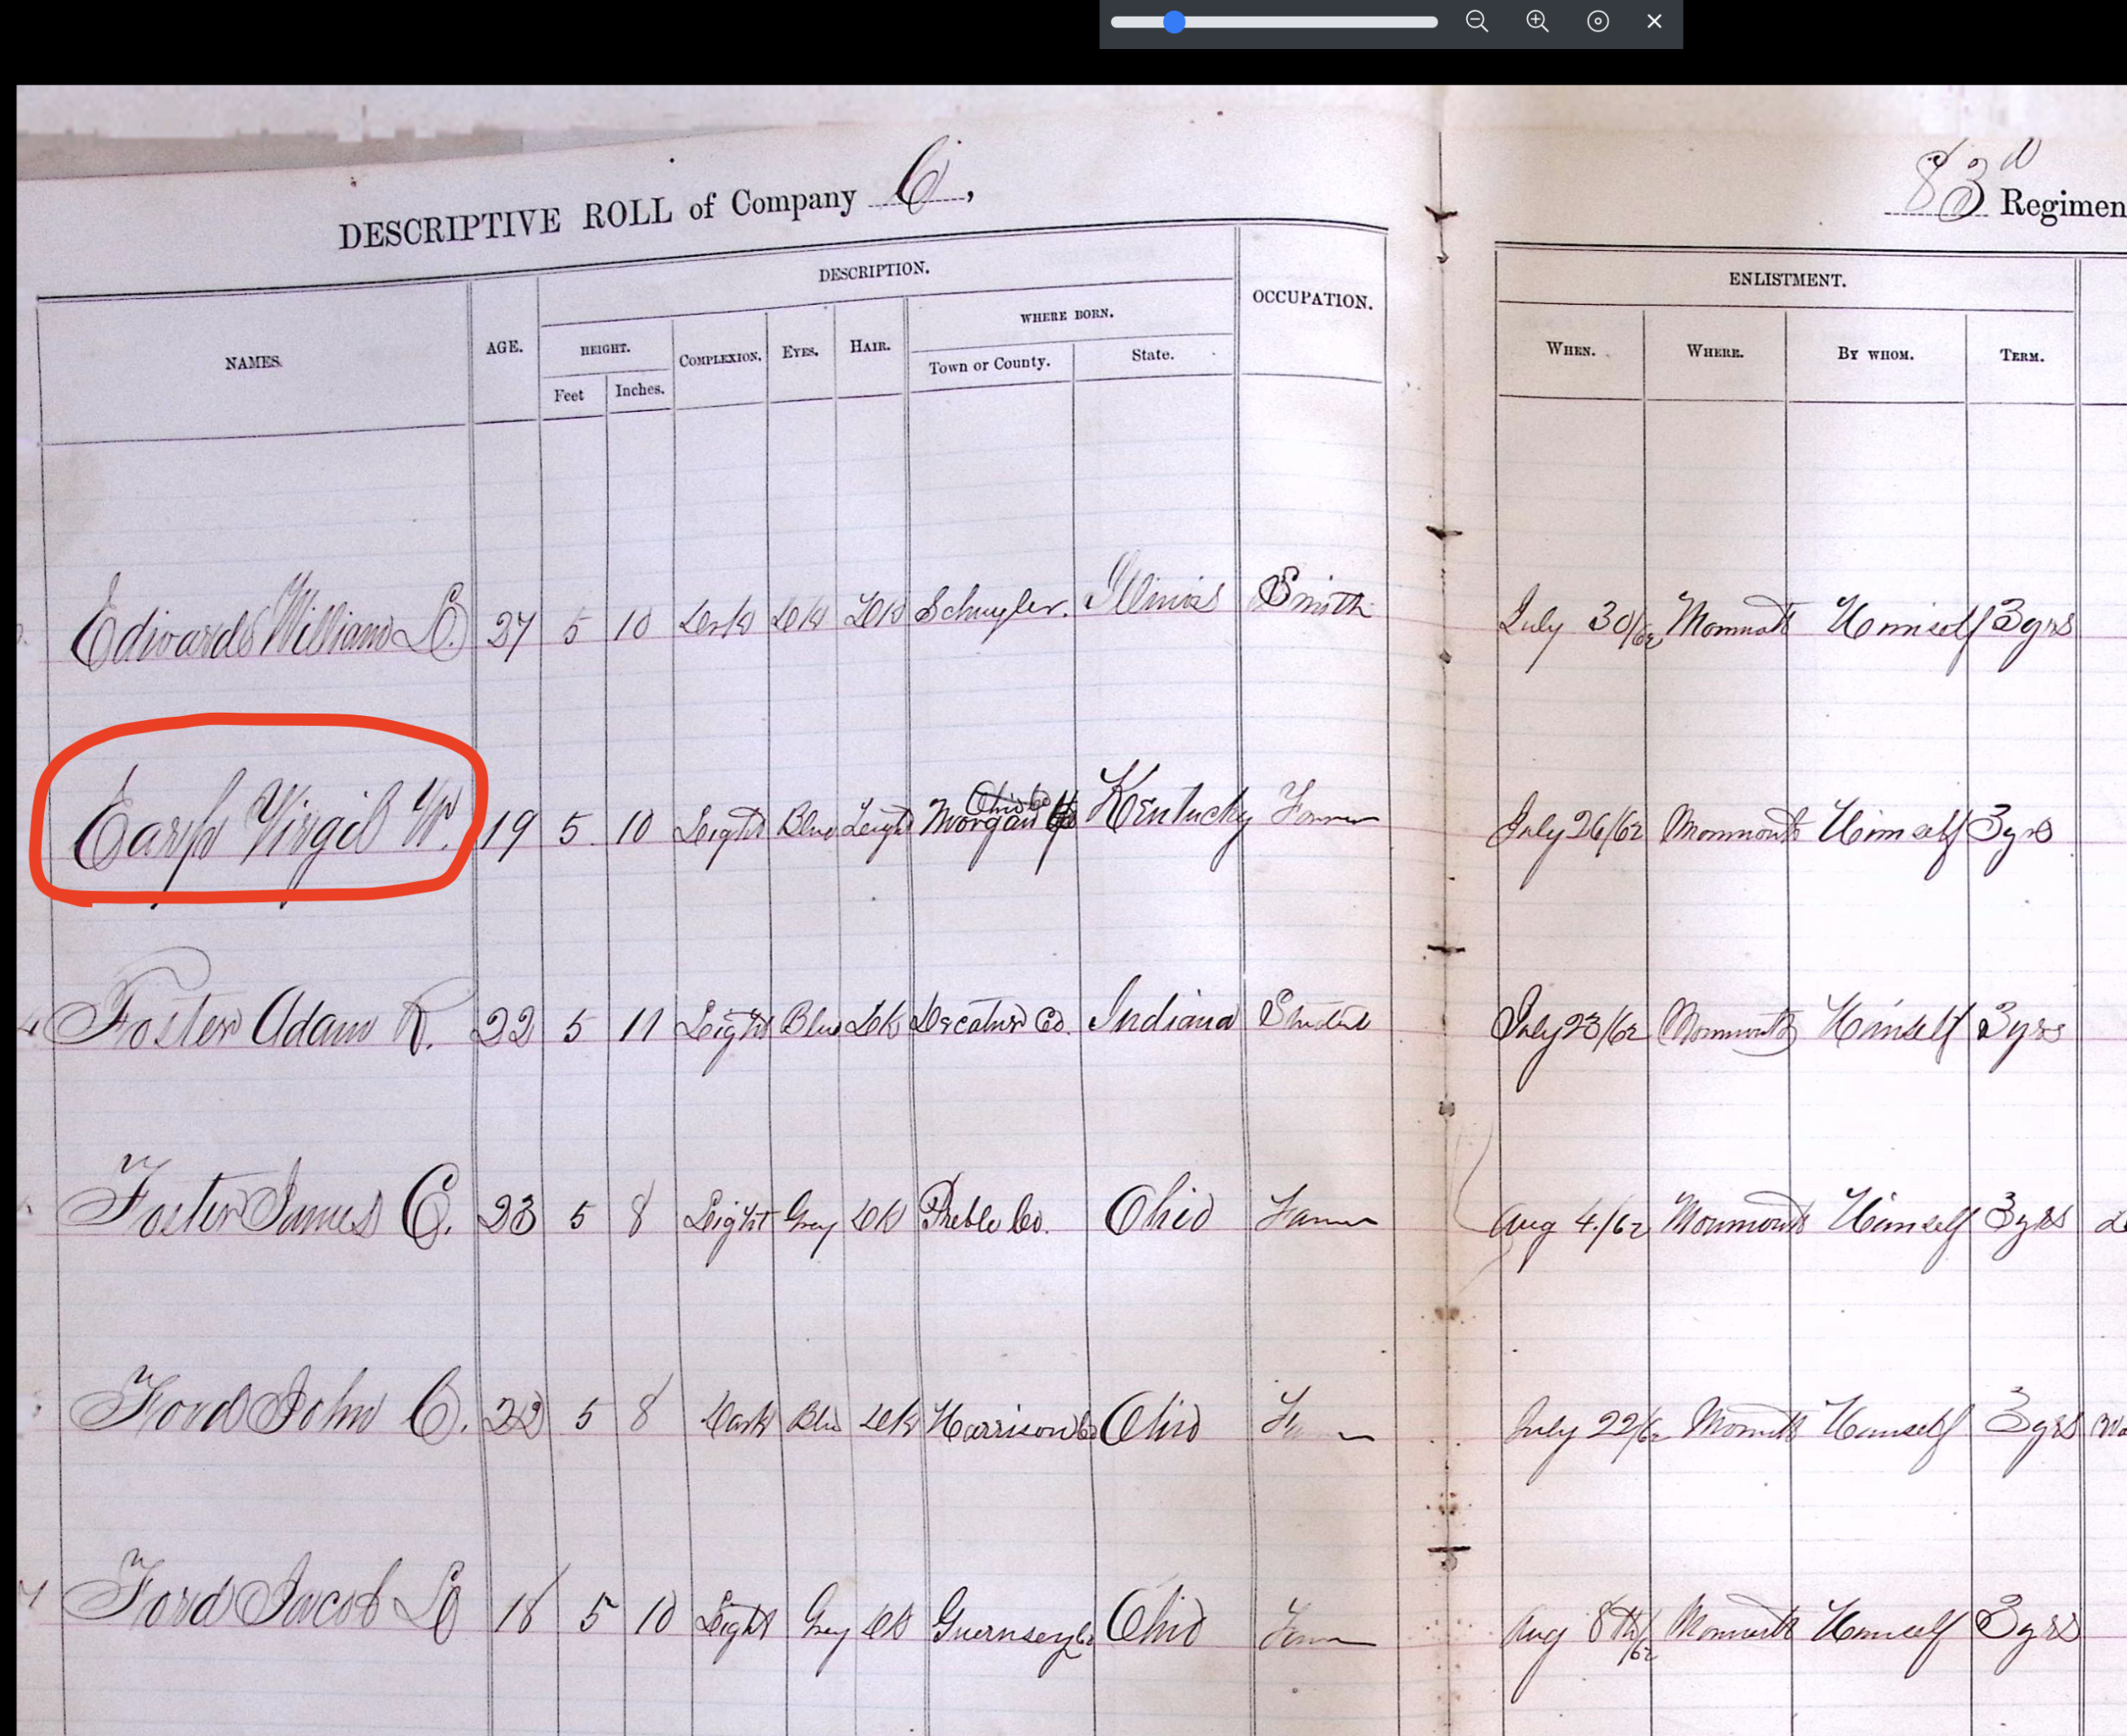 DESCRIPTIVE ROLL of Company C,
83d Regimen
NAMES.
AGE.
DESCRIPTION.
HEIGHT.
Feet
Inches.
COMPLEXION.
EYES.
HAIR.
WHERE BORN.
Town or County.
State.
OCCUPATION.
ENLISTMENT.
WHEN.
WHERE.
BY WHOM.
TERM.
Edwards William 27 5 10 Dark DK DK Schuyler. Illinois Smith July 30/62 Monmouth Himself 3 yrs
Earp Virgil W. 19 5 10 Light Blue Light Morgan Kentucky Farmer July 26/62 Monmouth Himself 3 yrs
Foster Adam R. 22 5 11 Light Blue DK Decatur Co. Indiana Student July 23/62 Monmouth Himself 3 yrs
Foster James C. 23 5 8 Light Grey DK Preble Co. Ohio Farmer Aug 4/62 Monmouth Himself 3 yrs
Ford John C. 22 5 8 Dark Blue DK Harrison Co Ohio July 22/62 Monmouth Himself 3 yrs
Ford Jacob 18 5 10 Light Grey DK Guernsey Co Ohio Farmer Aug 8th/62 Monmouth Himself 3 yrs